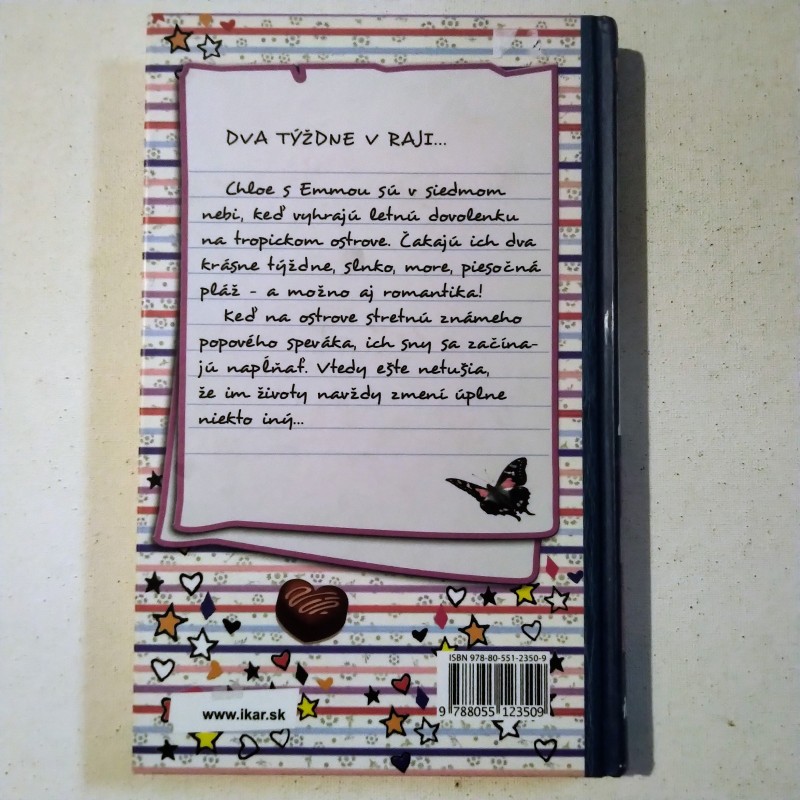 DVA TÝŽDNE V RAJI...
Chloe s Emmou sú v siedmom
nebi, keď vyhrajú letnú dovolenku
na tropickom ostrove. Čakajú ich dva
krásne týždne, slnko, more, piesočná
pláž - a možno aj romantika!
Keď na ostrove stretnú známeho
popového speváka, ich sny sa začína-
jú napĺňať. Vtedy ešte netušia,
že im životy navždy zmení úplne
niekto iný...
ISBN 978-80-551-2350-9
9 788055 123509
www.ikar.sk